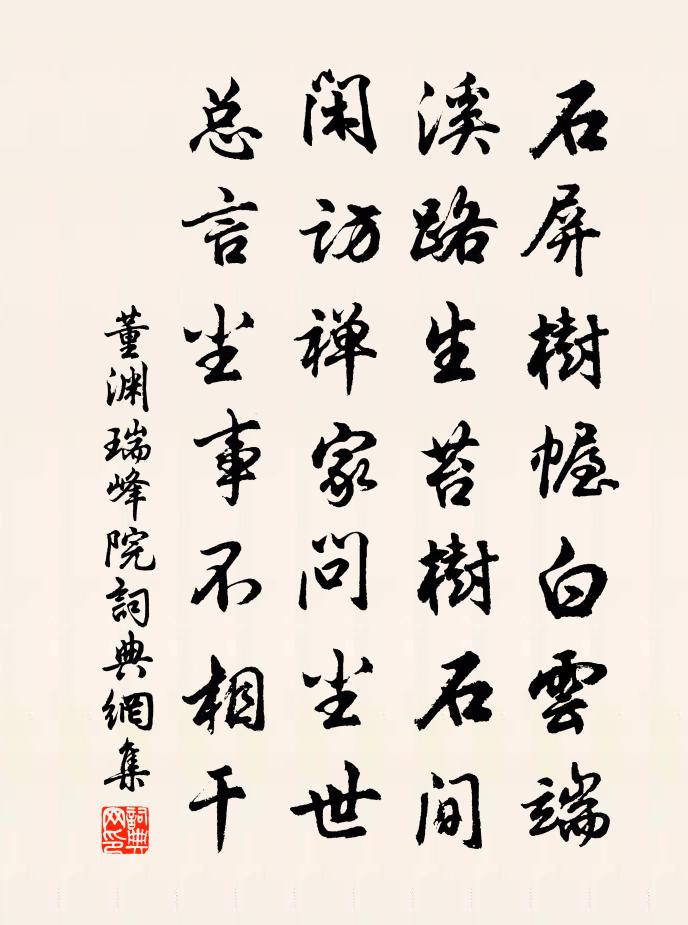 石屏樹幄白雲端
溪路生苔樹石间
闲访禅家问尘世
总言尘事不相干
董渊瑞峰院詞典網集
詞典
网印